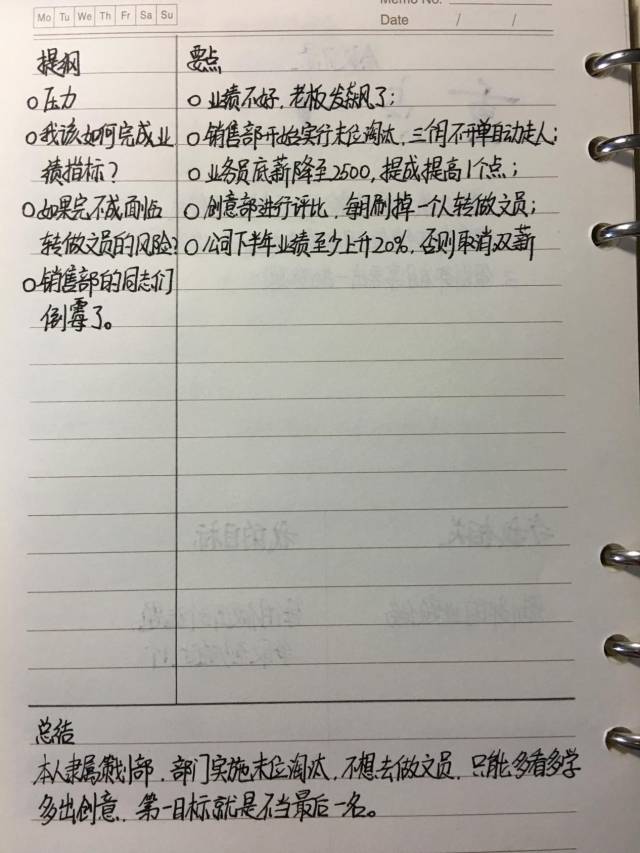 Memo No.
Mo Tu We Th Fr Sa Su
Date / /
提纲
○压力
○我该如何完成业
绩指标？
○如果完不成面临
转做文员的风险？
○销售部的同志们
倒霉了。
要点
○业绩不好，老板发飙了；
○销售部开始实行末位淘汰，三个月不开单自动走人；
○业务员底薪降至2500，提成提高1个点；
○创意部进行评比，每月刷掉一个人转做文员；
○公司下半年业绩至少上升20%，否则取消双薪
总结
本人隶属策划部，部门实施末位淘汰，不想去做文员，只能多看多学
多出创意，第一目标就是不当最后一名。